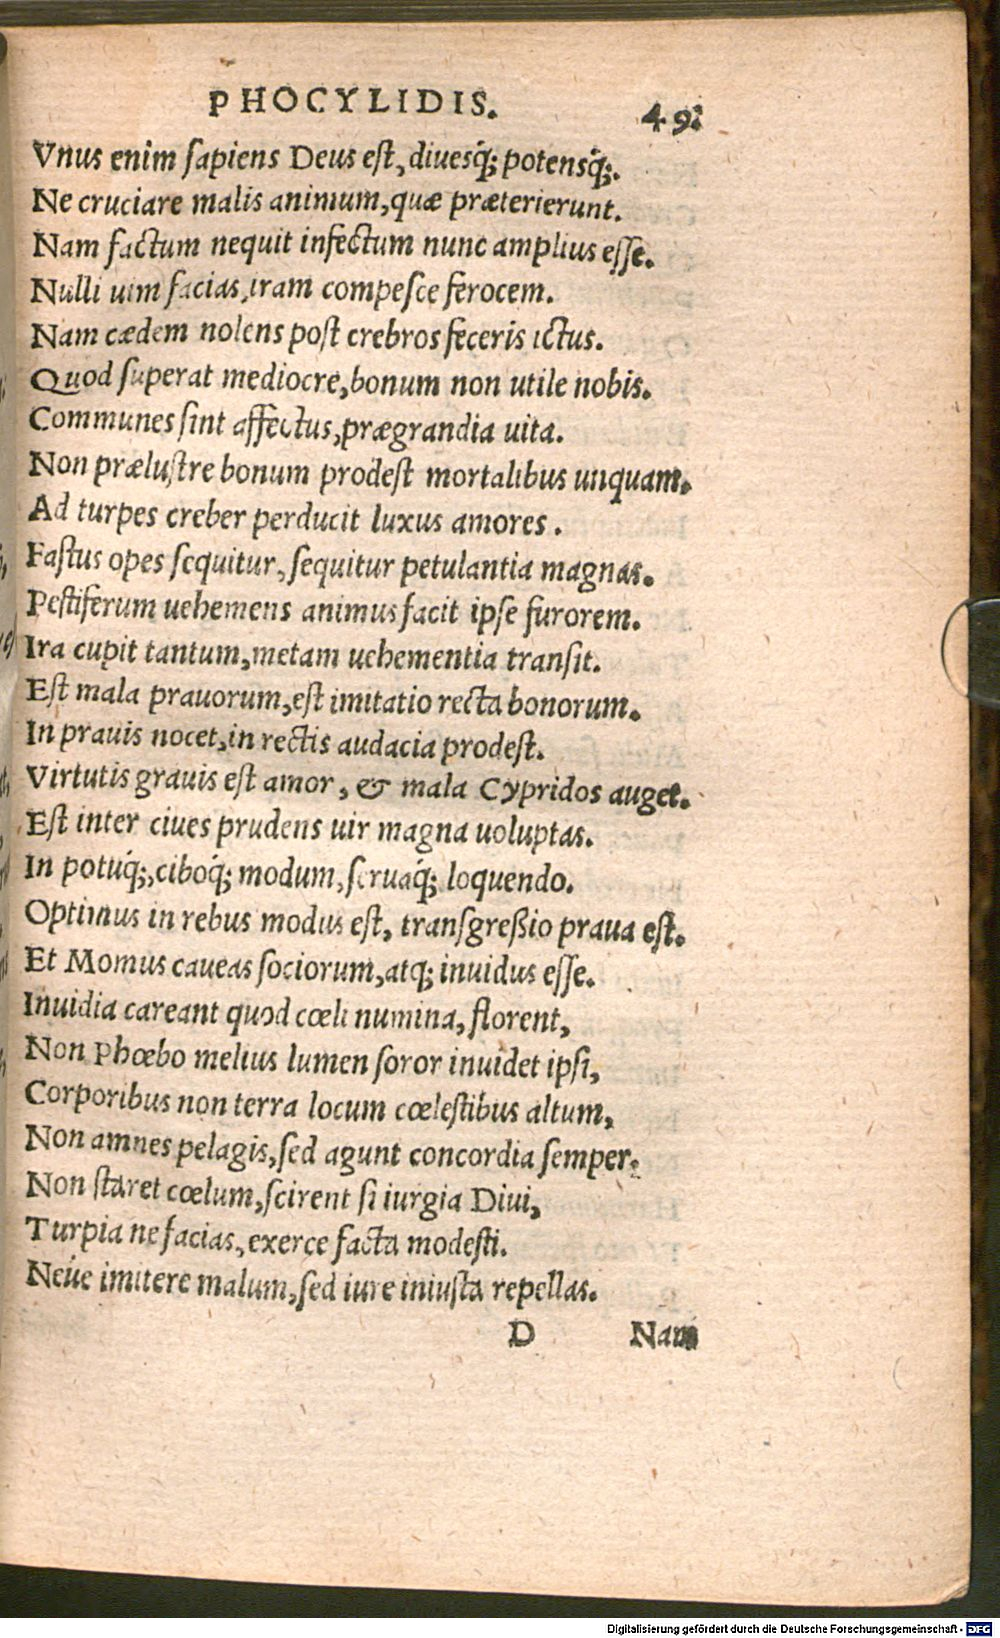 PHOCYLIDIS. 49.
Vnus enim sapiens Deus est, diuesq́; potensq́;.
Ne cruciare malis animum, quæ præterierunt.
Nam factum nequit infectum nunc amplius esse.
Nulli uim facias, iram compesce ferocem.
Nam cædem nolens post crebros feceris ictus.
Quod superat mediocre, bonum non utile nobis.
Communes sint affectus, prægrandia uita.
Non prælustre bonum prodest mortalibus unquam.
Ad turpes creber perducit luxus amores.
Fastus opes sequitur, sequitur petulantia magnas.
Pestiferum uehemens animus facit ipse furorem.
Ira cupit tantum, metam uehementia transit.
Est mala prauorum, est imitatio recta bonorum.
In prauis nocet, in rectis audacia prodest.
Virtutis grauis est amor, & mala Cypridos auget.
Est inter ciues prudens uir magna uoluptas.
In potuq́;, ciboq́; modum, seruaq́; loquendo.
Optimus in rebus modus est, transgreßio praua est.
Et Momus caueas sociorum, atq; inuidus esse.
Inuidia careant quod cœli numina, florent,
Non Phœbo melius lumen soror inuidet ipsi,
Corporibus non terra locum cœlestibus altum,
Non amnes pelagis, sed agunt concordia semper.
Non staret cœlum, scirent si iurgia Diui,
Turpia ne facias, exerce facta modesti.
Neúe imitere malum, sed iure iniusta repellas.
D Nam
Digitalisierung gefördert durch die Deutsche Forschungsgemeinschaft - DFG